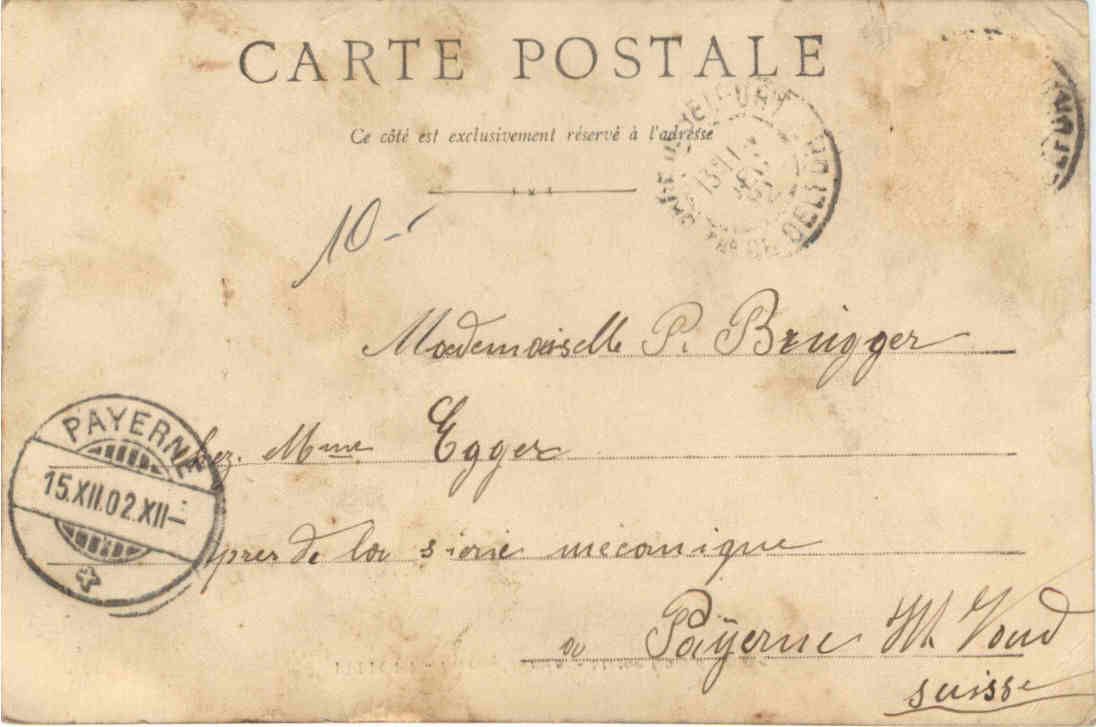 CARTE POSTALE
Ce côté est exclusivement réservé à l'adresse
10-
Mademoiselle P. Brugger
chez. Mme Egger
près de la sierie mécanique
à Payerne Vaud
suisse
PAYERNE
15.XII.02.XII-
BELFORT